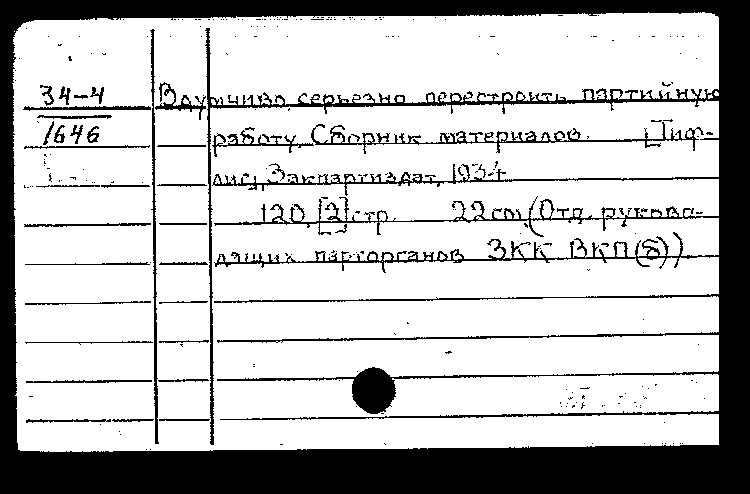 34-4
1646
Вдумчиво, серьезно перестроить партийную
работу. Сборник материалов. [Тиф-
лис], Закпартиздат, 1934
120, [2] стр. 22см. (Отд. руково-
дящих парторганов ЗКК ВКП(б)).